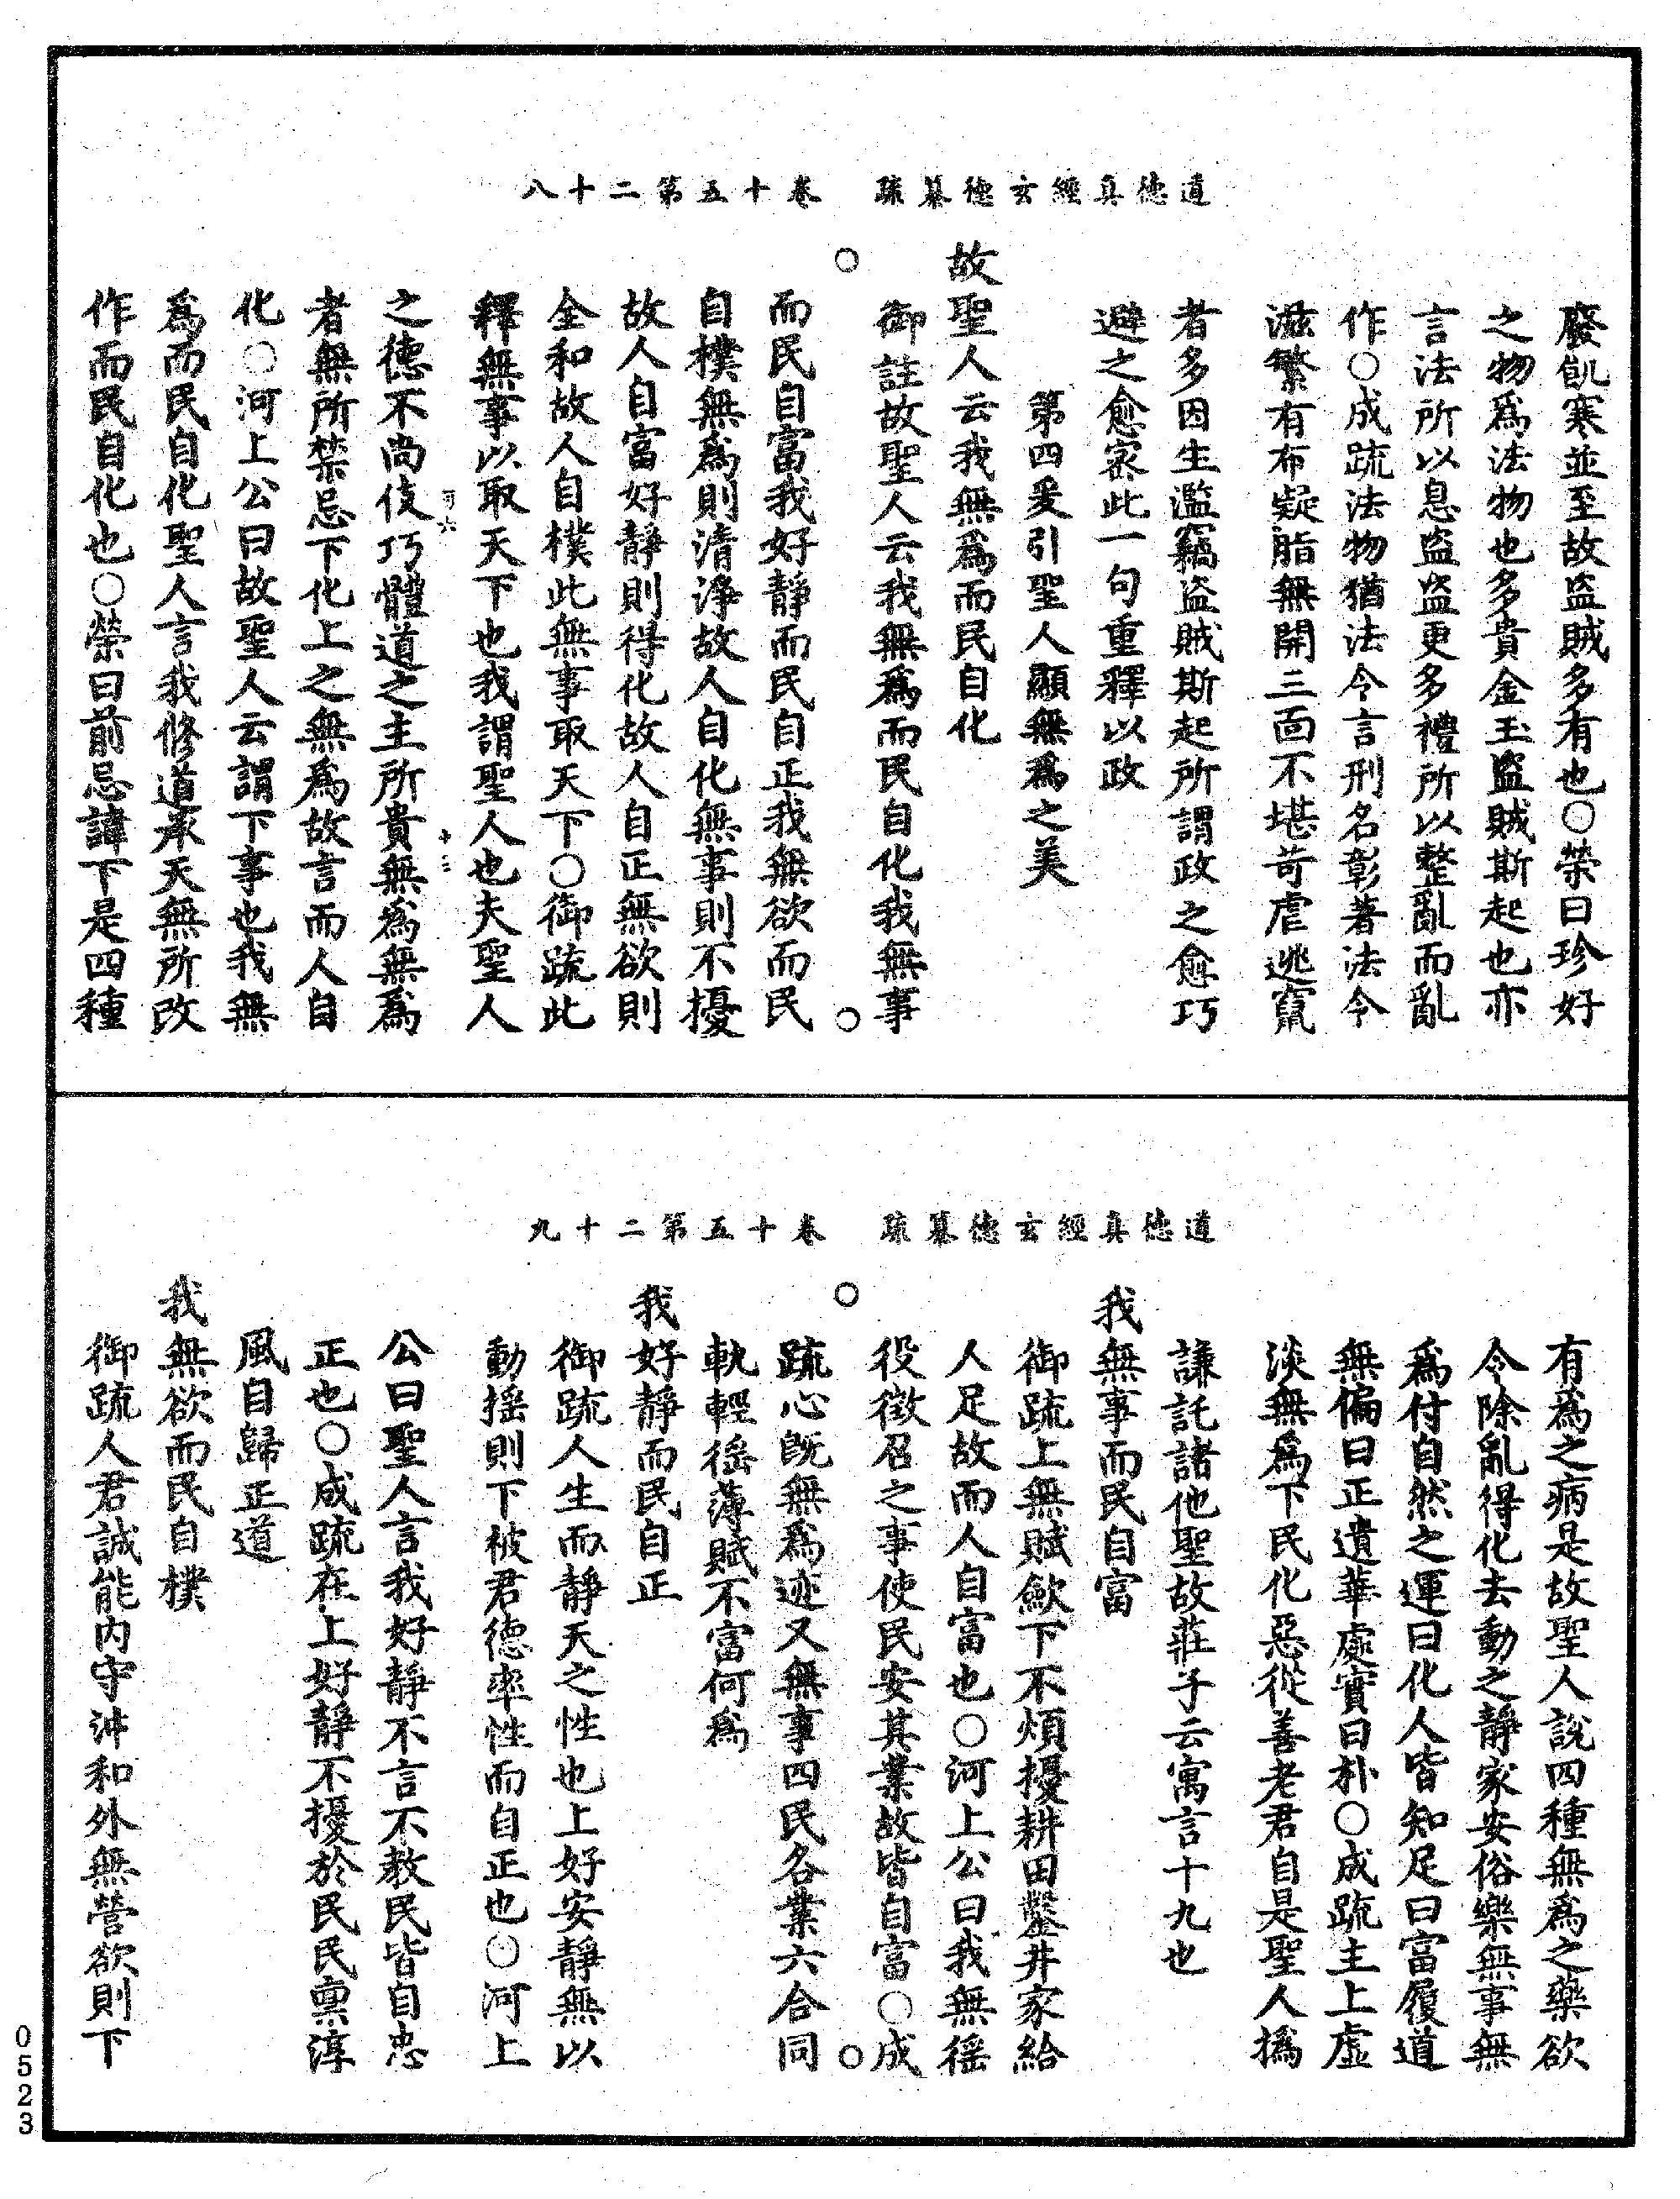 道德真經玄德纂疏　卷十五第二十八
廢飢寒並至故盜賊多有也○榮曰珍好
之物爲法物也多貴金玉盜賊斯起也亦
言法所以息盜盜更多禮所以整亂而亂
作○成疏法物猶法令言刑名彰著法令
滋繁有布凝脂無開三面不堪苛虐逃竄
者多因生濫竊盜賊斯起所謂政之愈巧
避之愈密此一句重釋以政
第四爰引聖人顯無爲之美
故聖人云我無爲而民自化
御註故聖人云我無爲而民自化我無事
而民自富我好靜而民自正我無欲而民
自樸無爲則清淨故人自化無事則不擾
故人自富好靜則得化故人自正無欲則
全和故人自樸此無事取天下○御疏此
釋無事以取天下也我謂聖人也夫聖人
之德不尚伎巧體道之主所貴無爲無爲
者無所禁忌下化上之無爲故言而人自
化○河上公曰故聖人云謂下事也我無
爲而民自化聖人言我修道承天無所改
作而民自化也○榮曰前忌諱下是四種
道德真經玄德纂疏　卷十五第二十九
有爲之病是故聖人說四種無爲之藥欲
令除亂得化去動之靜家安俗樂無事無
爲付自然之運曰化人皆知足曰富履道
無偏曰正遺華處實曰朴○成疏主上虛
淡無爲下民化惡從善老君自是聖人撝
謙託諸他聖故莊子云寓言十九也
我無事而民自富
御疏上無賦斂下不煩擾耕田鑿井家給
人足故而人自富也○河上公曰我無徭
役徵召之事使民安其業故皆自富○成
疏心既無爲迹又無事四民各業六合同
軌輕徭薄賦不富何爲
我好靜而民自正
御疏人生而靜天之性也上好安靜無以
動搖則下被君德率性而自正也○河上
公曰聖人言我好靜不言不教民皆自忠
正也○成疏在上好靜不擾於民民稟淳
風自歸正道
我無欲而民自樸
御疏人君誠能內守沖和外無營欲則下
0523